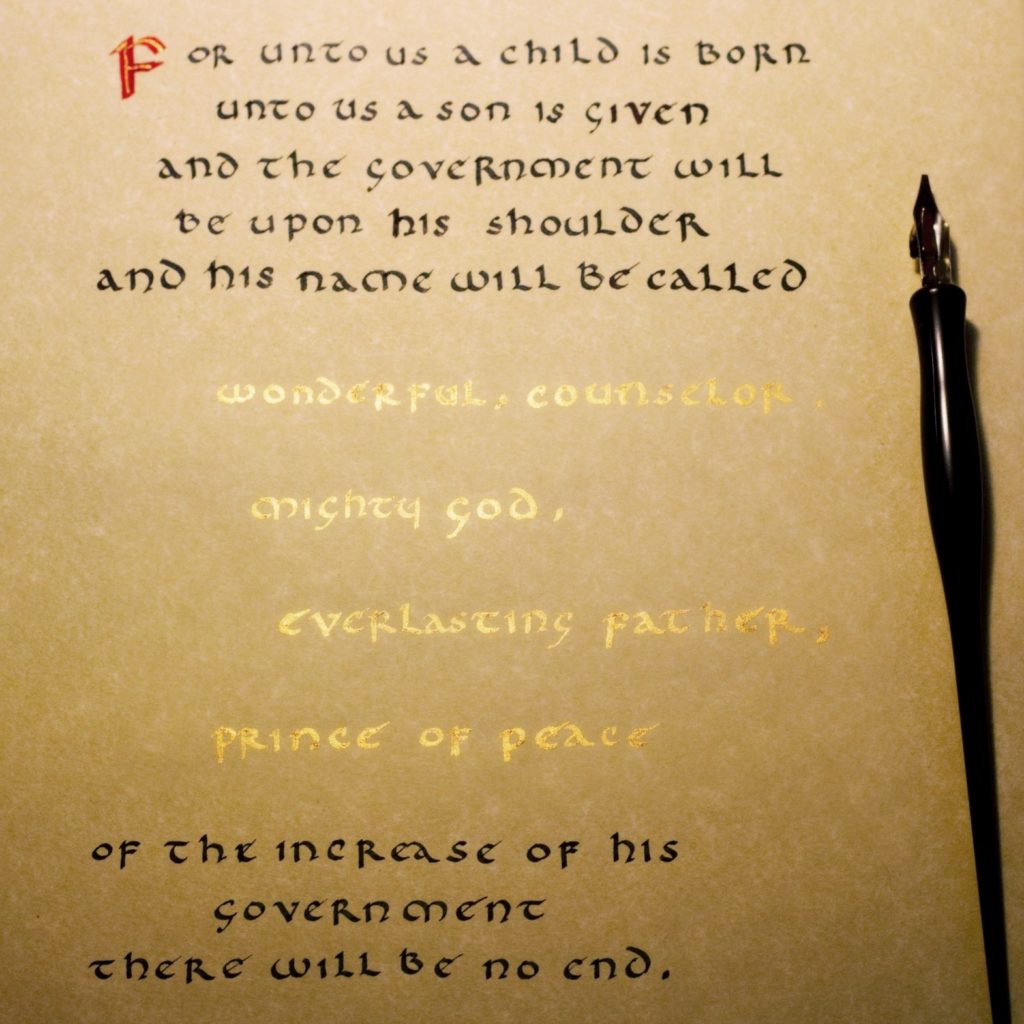 For unto us a child is born
unto us a son is given
and the government will
be upon his shoulder
and his name will be called
wonderful, counselor,
mighty god,
everlasting father,
prince of peace
of the increase of his
government
there will be no end.